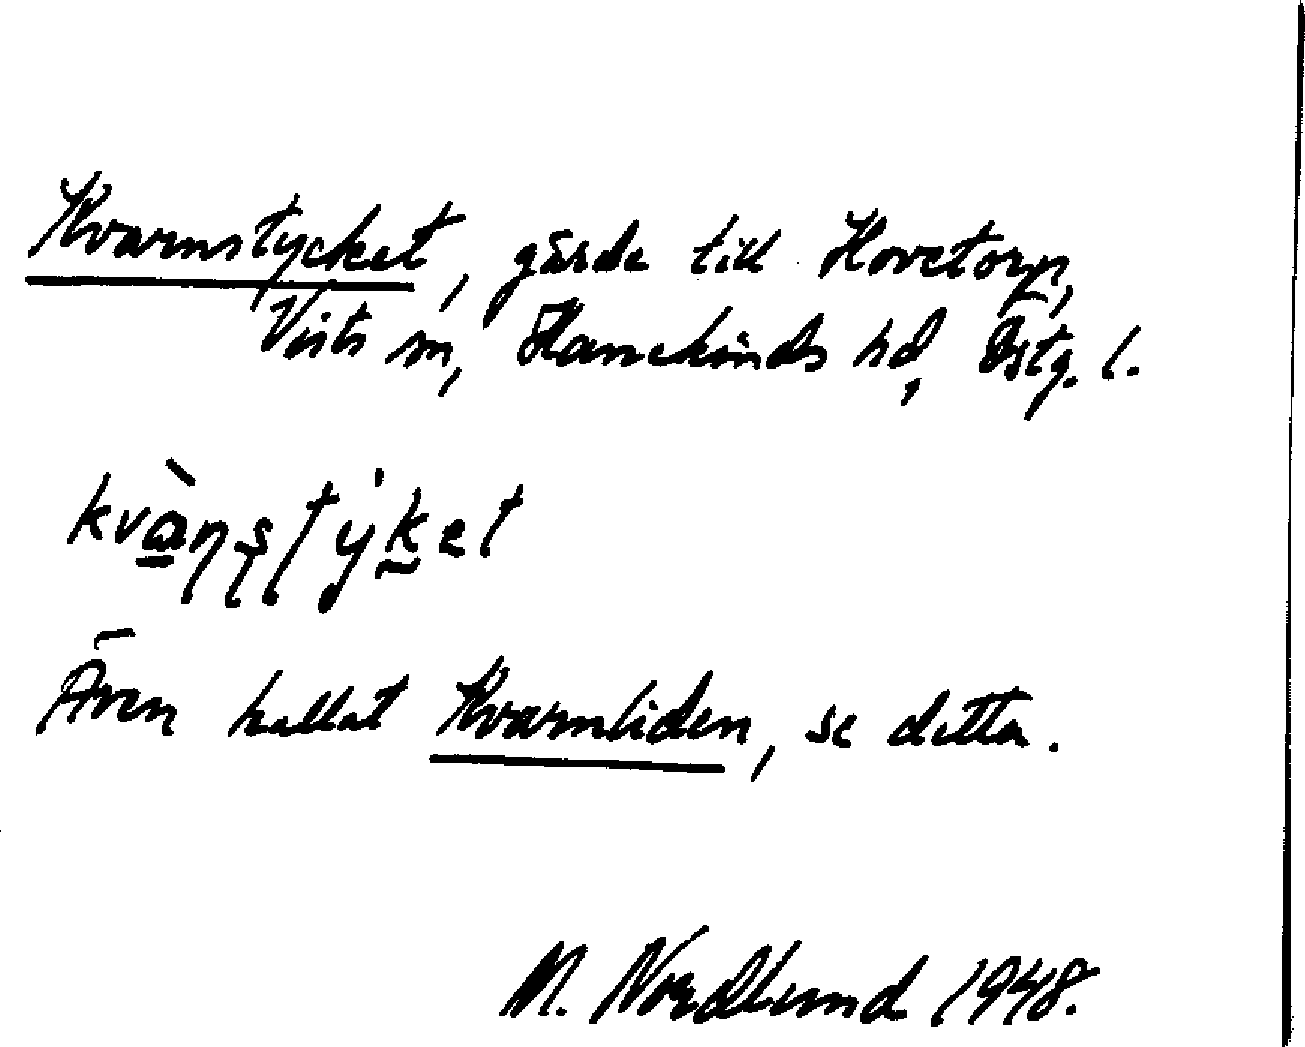 Kvarnstycket, gärde till Hovetorp,
Vists sn, Hanekinds hd, Östg. l.
kvàṇṣtýket
Även kallat Kvarnliden, se detta.
M. Nordlund 1948.